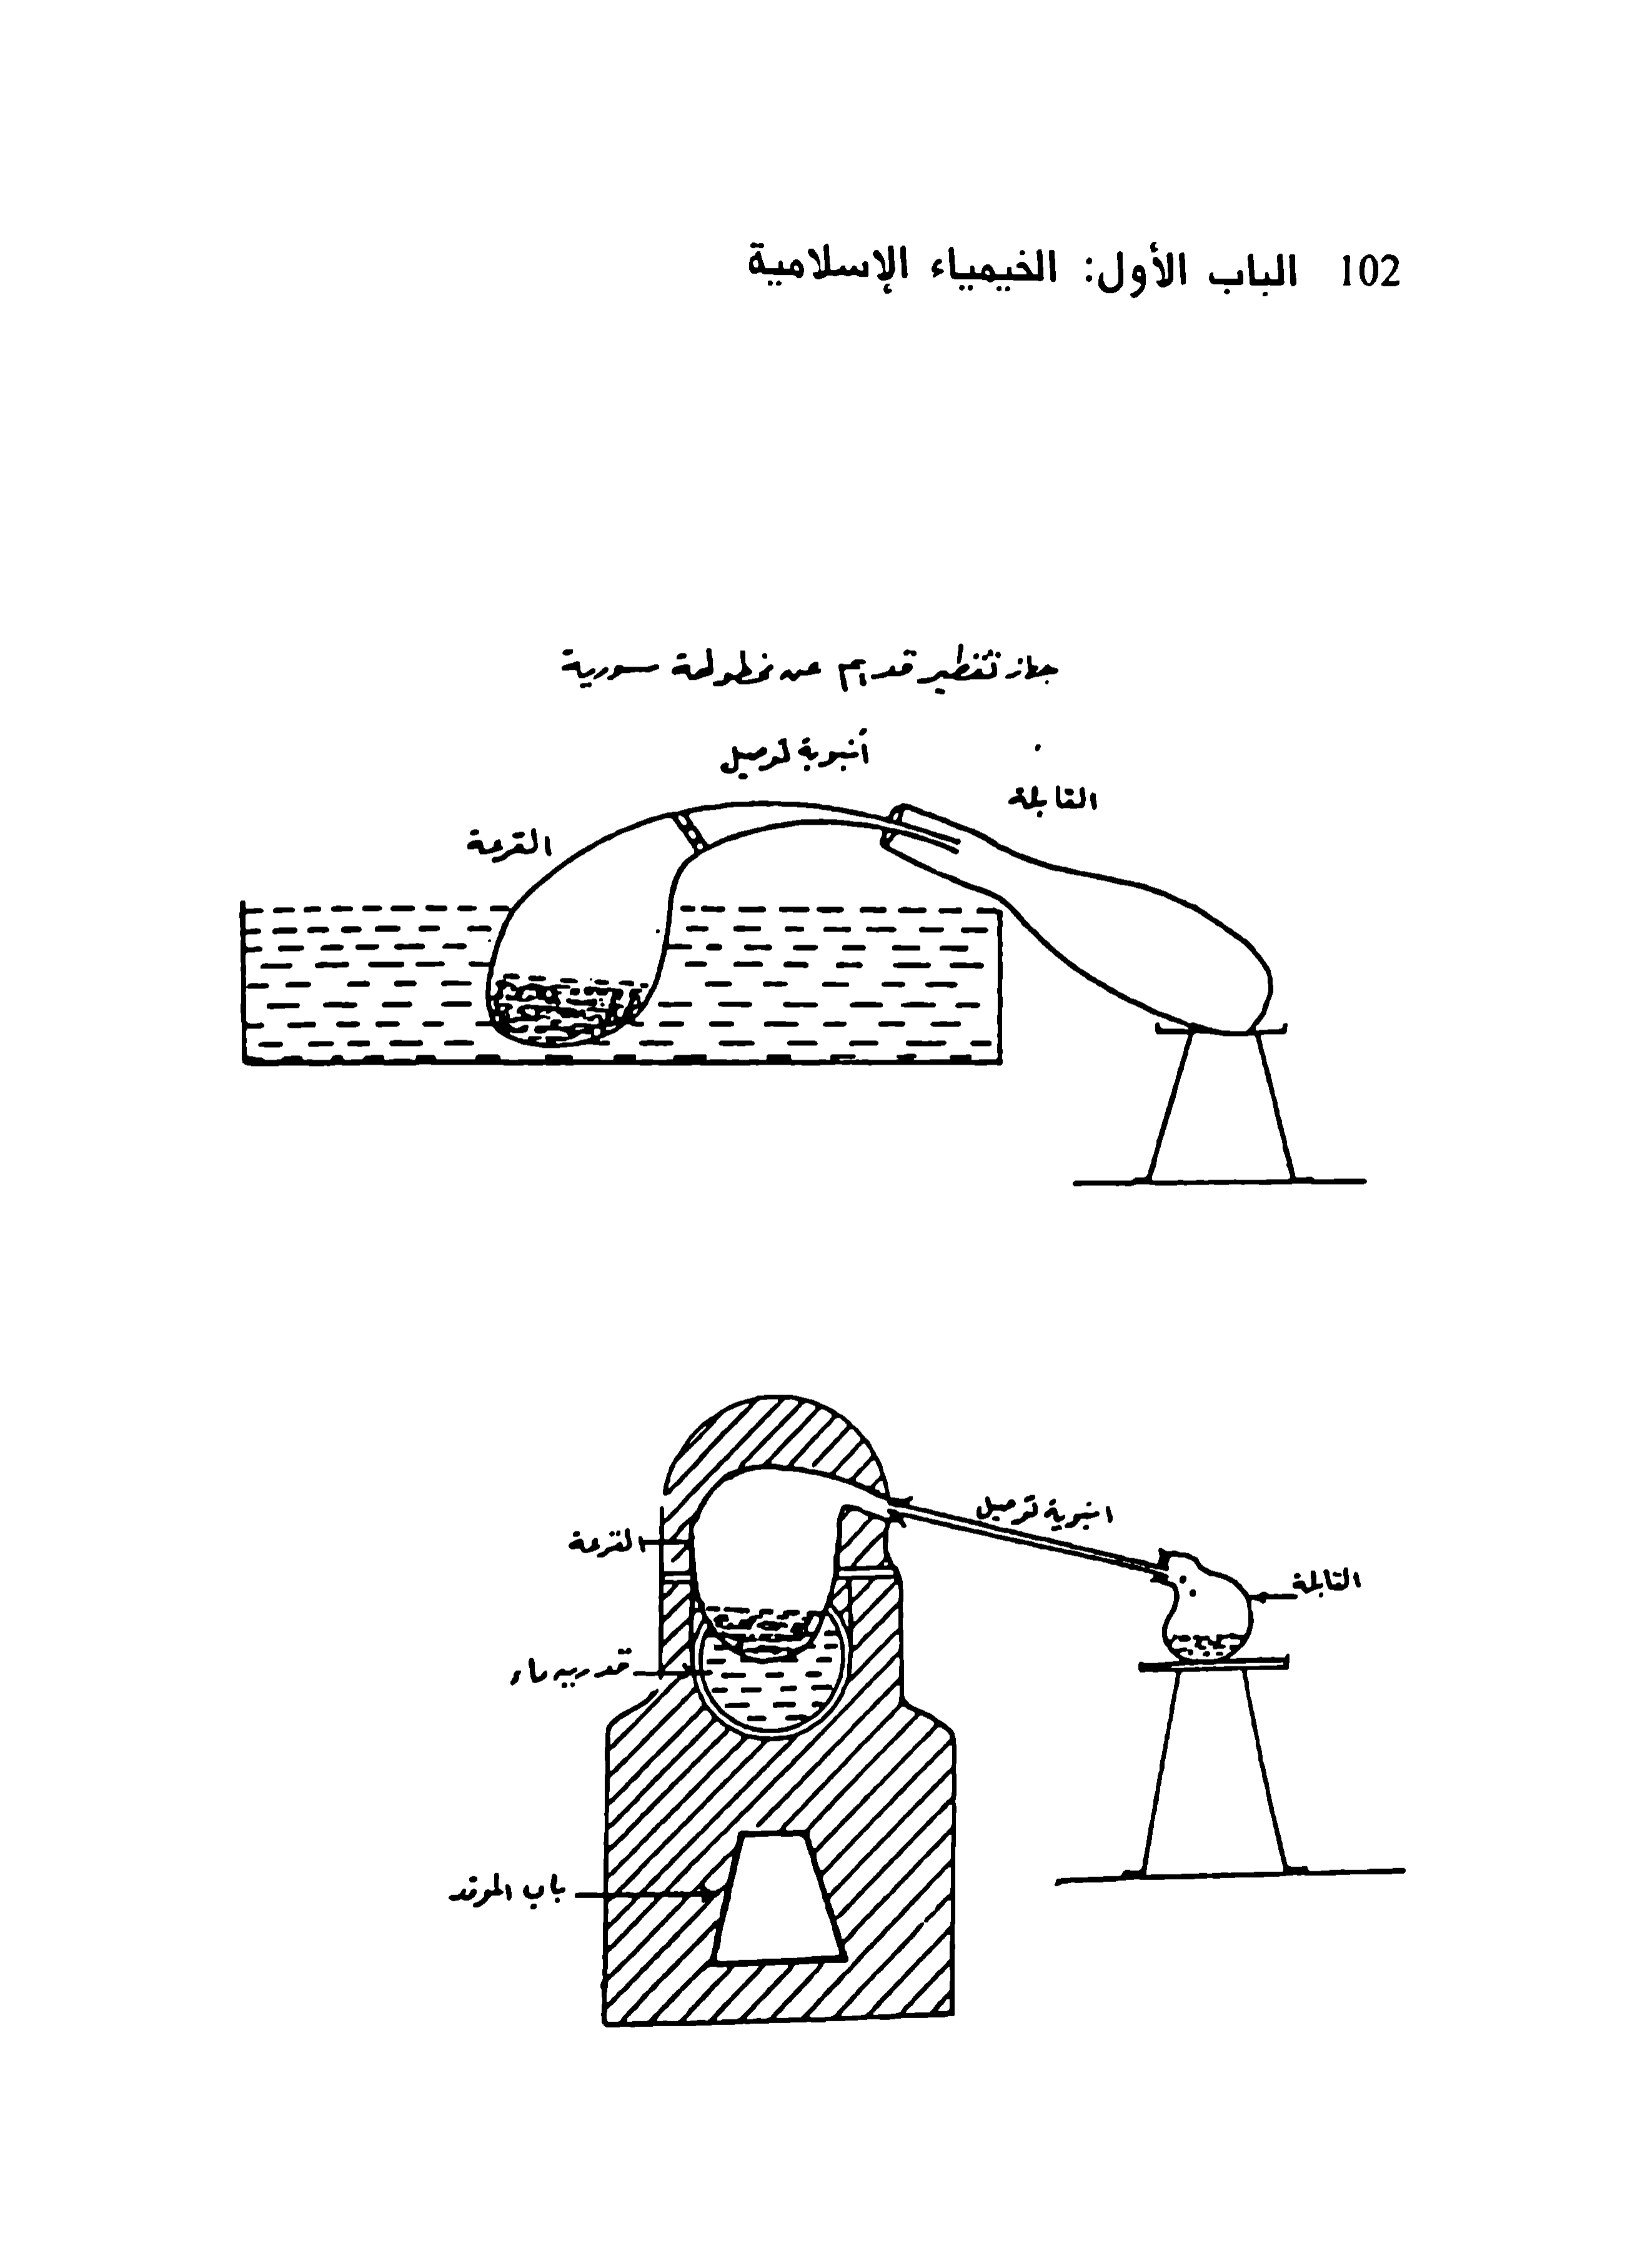 102 الباب الأول: الخيمياء الإسلامية
جهاز تقطير قديم عن مخطوطة سورية
أنبوبة توصيل
القابلة
القرعة
انبوبة توصيل
القرعة
القابلة
قدر به ماء
باب الموقد